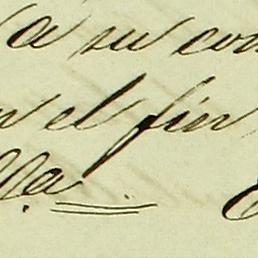 a su con
n el fin
lla.